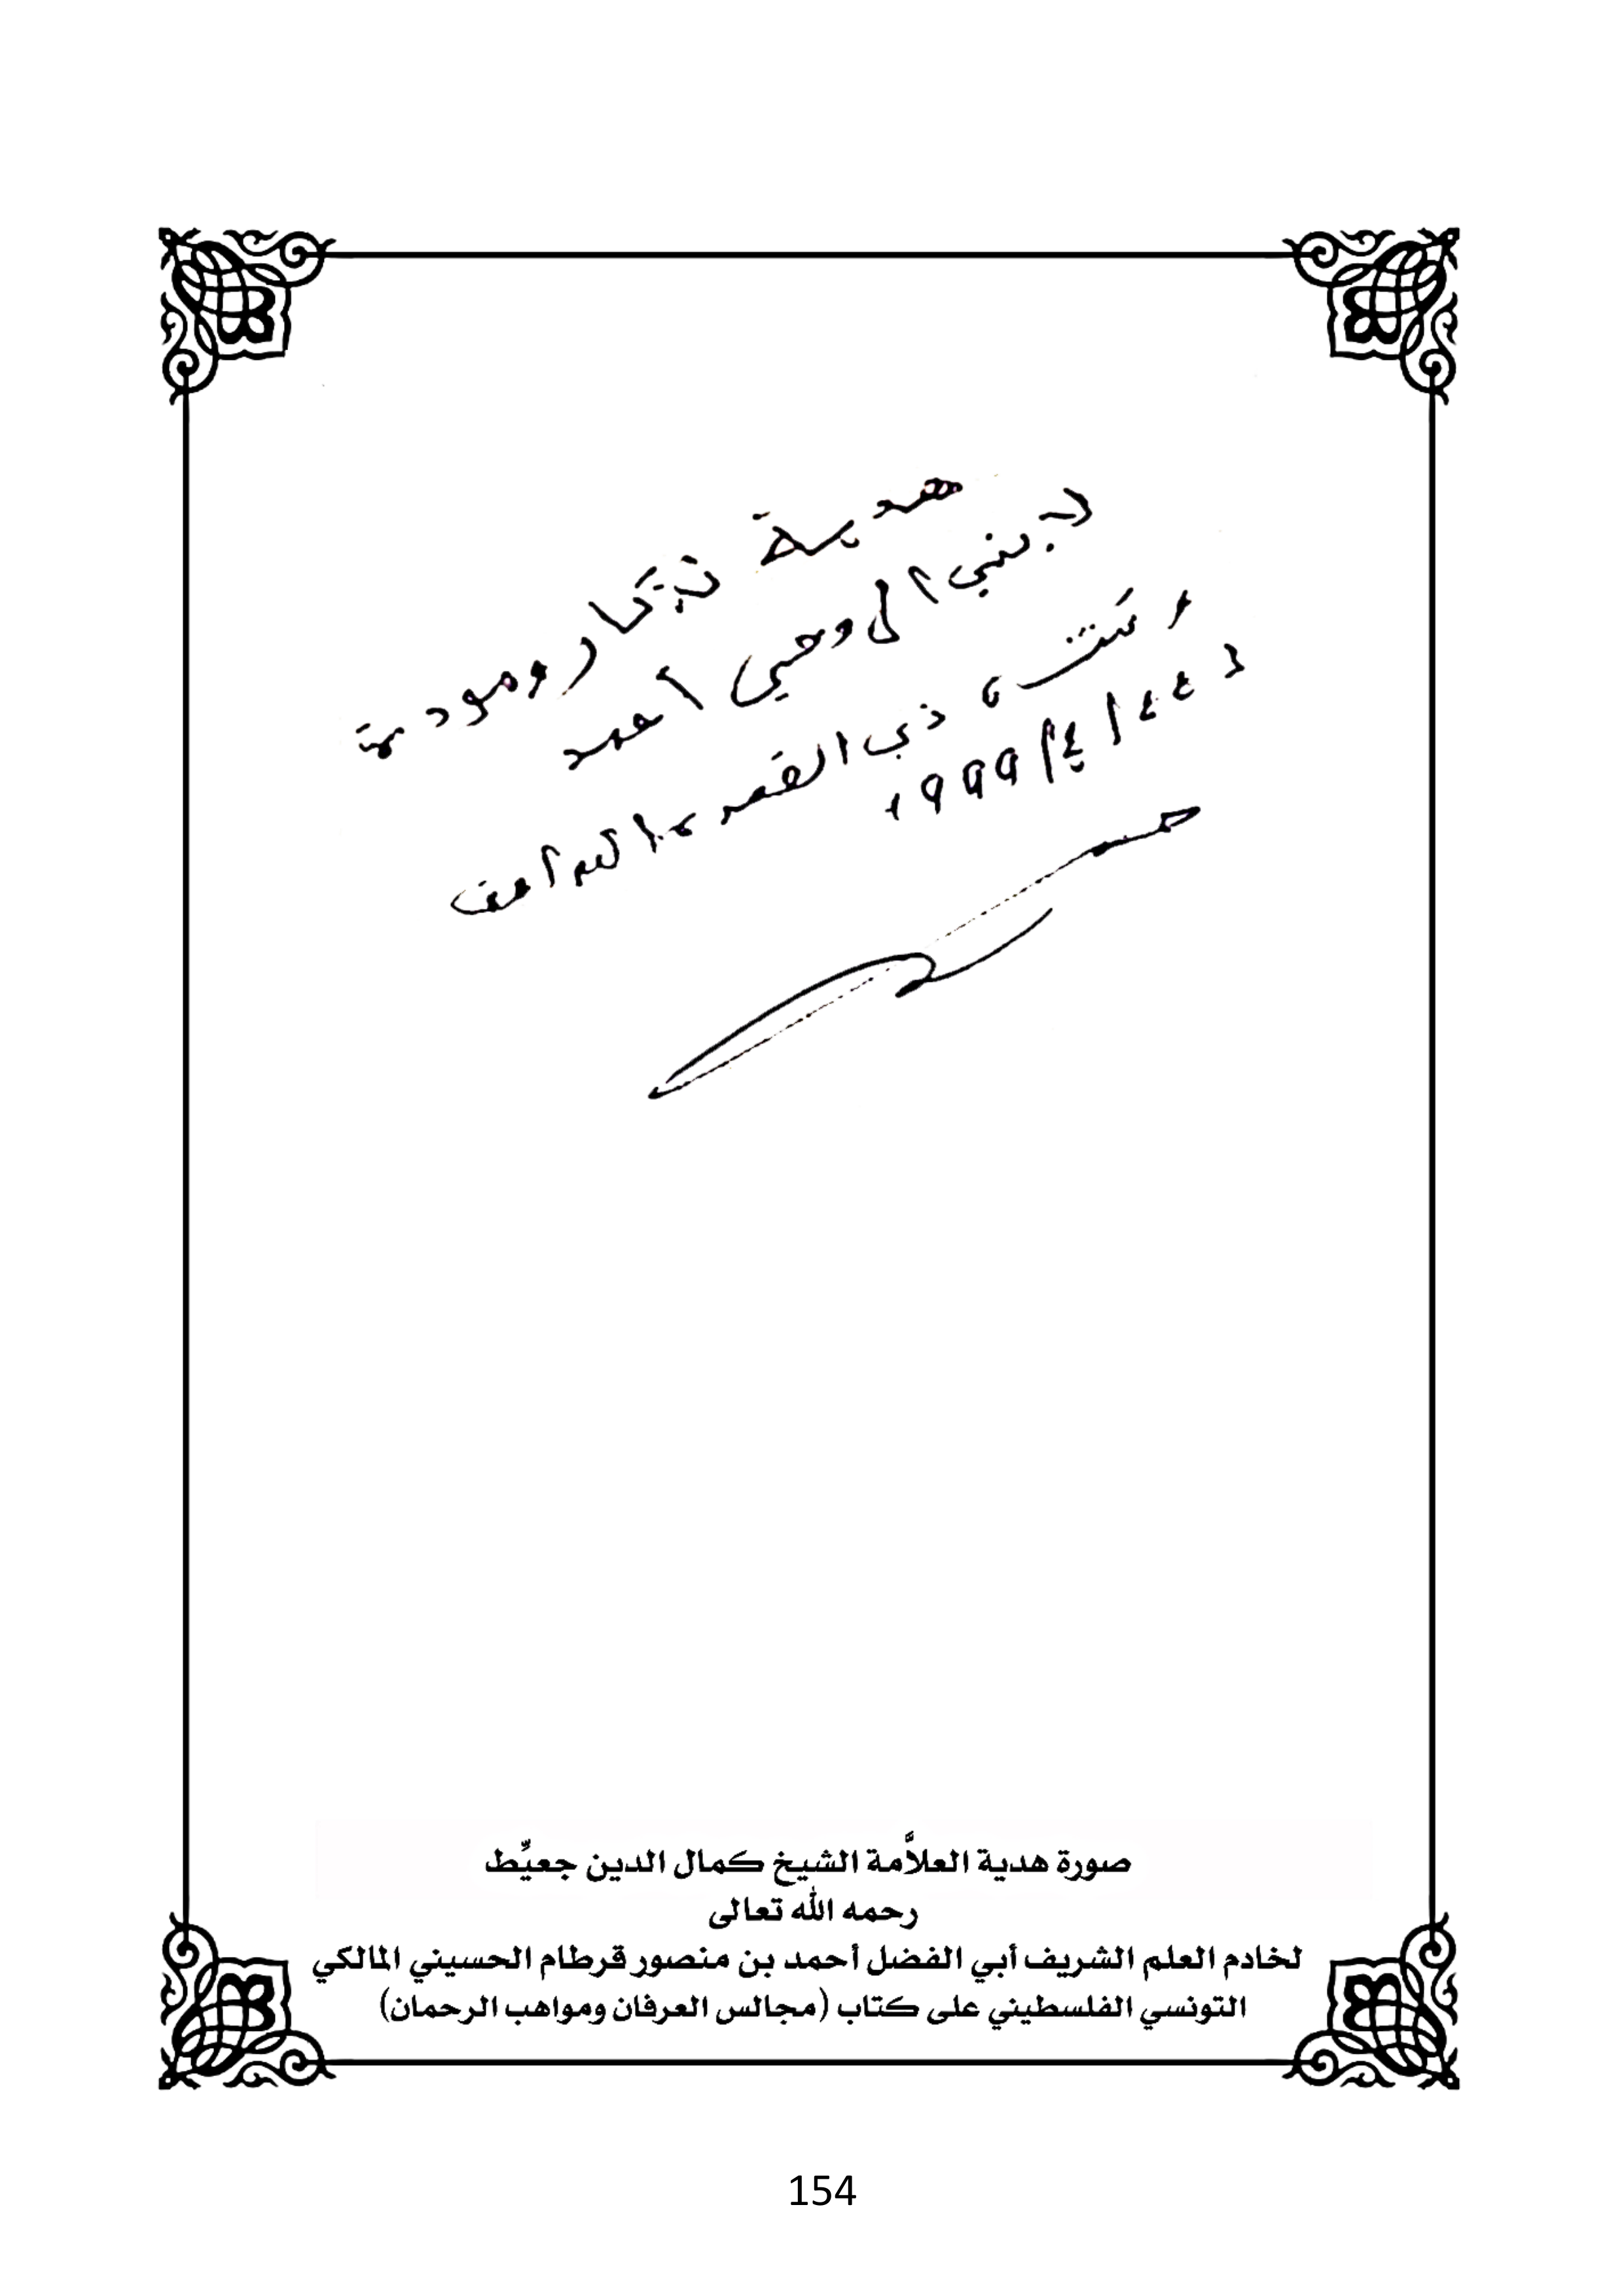 هدية تذكار ومودة
لابني الروحي أحمد
ذي القعدة الحرام
١٩٩٩
صورة هدية العلاَّمة الشيخ كمال الدين جعيِّط
رحمه الله تعالى
لخادم العلم الشريف أبي الفضل أحمد بن منصور قرطام الحسيني المالكي
التونسي الفلسطيني على كتاب (مجالس العرفان ومواهب الرحمان)
154